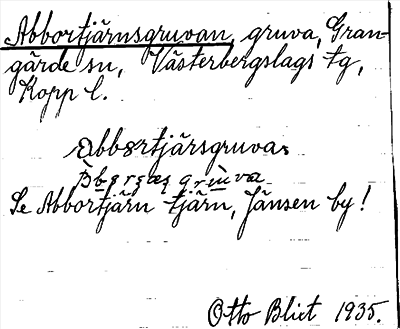 Abbortjärnsgruvan, gruva, Gran-
gärde sn, Västerbergslags tg,
Kopp. l.
Abbortjärsgruva
Se Abbortjärn tjärn, Jänsen by!
Otto Blixt 1935.